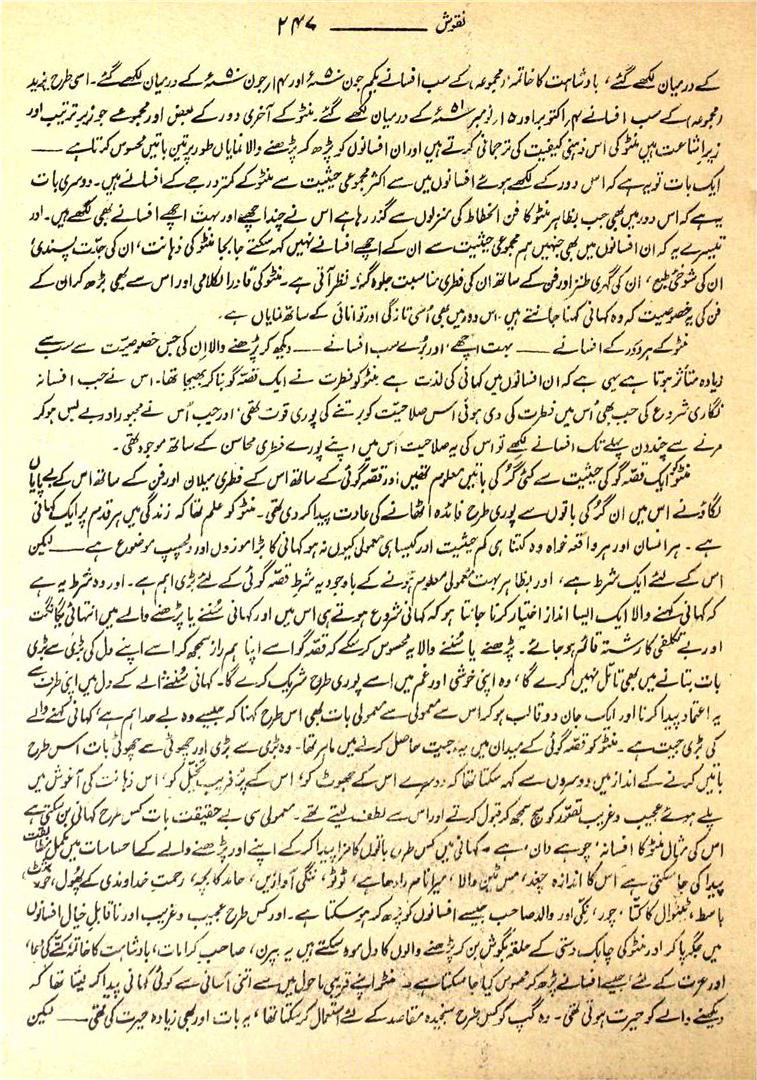 نقوش ——— ۲۴۷
کے درمیان لکھے گئے، بادشاہت کا خاتمہ (مجموعہ) کے سب افسانے یکم جون ۵۰ء اور ۱۴ جون ۵۰ء کے درمیان لکھے گئے۔ اسی طرح یزید
(مجموعہ) کے سب افسانے ۴ اکتوبر اور ۱۵ نومبر ۵۱ء کے درمیان لکھے گئے۔ منٹو کے آخری دور کے بعض اور مجموعے جو زیر ترتیب اور
زیر اشاعت ہیں منٹو کی اس ذہنی کیفیت کی ترجمانی کرتے ہیں اور ان افسانوں کو پڑھ کر پڑھنے والا نمایاں طور پر تین باتیں محسوس کرتا ہے ——
ایک بات تو یہ ہے کہ اس دور کے لکھے ہوئے افسانوں میں سے اکثر مجموعی حیثیت سے منٹو کے کمتر درجے کے افسانے ہیں۔ دوسری بات
یہ ہے کہ اس دور میں بھی جب بظاہر منٹو کا فن انحطاط کی منزلوں سے گذر رہا ہے اس نے چند اچھے اور بہت اچھے افسانے بھی لکھے ہیں۔ اور
تیسرے یہ کہ ان افسانوں میں بھی جنہیں ہم مجموعی حیثیت سے ان کے اچھے افسانے نہیں کہہ سکتے جابجا منٹو کی ذہانت، ان کی جدّت پسندی،
ان کی شوخیٔ طبع، ان کی گہری طنز اور فن کے ساتھ ان کی فطری مناسبت جلوہ گر نظر آتی ہے۔ منٹو کی قادر الکلامی اور اس سے بھی بڑھ کر ان کے
فن کی یہ خصوصیت کہ وہ کہانی کہنا جانتے ہیں اس دور میں بھی اُسی تازگی اور توانائی کے ساتھ نمایاں ہے۔
منٹو کے ہر دَور کے افسانے —— بہت اچھے، اور بُرے سب افسانے —— دیکھ کر پڑھنے والا ان کی جس خصوصیّت سے سب سے
زیادہ متأثر ہوتا ہے یہی ہے کہ ان افسانوں میں کہانی کی لذت ہے منٹو کو فطرت نے ایک قصّہ گو بنا کر بھیجا تھا۔ اس نے جب افسانہ
نگاری شروع کی جب بھی اُس میں فطرت کی دی ہوئی اس صلاحیّت کو برتنے کی پوری قوت تھی، اور جب اُس نے مجبور اور بے بس ہو کر
مرنے سے چند دن پہلے تک افسانے لکھے تو اس کی یہ صلاحیت اس میں اپنے پورے فطری محاسن کے ساتھ موجود تھی۔
منٹو کو ایک قصّہ گو کی حیثیت سے کئی گُر کی باتیں معلوم تھیں، اور قصّہ گوئی کے ساتھ اس کے فطری میلان اور فن کے ساتھ اس کے بے پایاں
لگاؤ نے اس میں ان گُر کی باتوں سے پوری طرح فائدہ اٹھانے کی عادت پیدا کر دی تھی۔ منٹو کو علم تھا کہ زندگی میں ہر قدم پر ایک کہانی
ہے۔ ہر انسان اور ہر واقعہ خواہ وہ کتنا ہی کم حیثیت اور کیسا ہی معمولی کیوں نہ ہو کہانی کا بڑا موزوں اور دلچسپ موضوع ہے —— لیکن
اس کے لئے ایک شرط ہے، اور بظاہر بہت معمولی معلوم ہونے کے باوجود یہ شرط قصّہ گوئی کے لئے بڑی اہم ہے۔ اور وہ شرط یہ ہے
کہ کہانی کہنے والا ایک ایسا انداز اختیار کرنا جانتا ہو کہ کہانی شروع ہوتے ہی اس میں اور کہانی سُننے یا پڑھنے والے میں انتہائی یگانگت
اور بے تکلفی کا رشتہ قائم ہو جائے۔ پڑھنے یا سُننے والا یہ محسوس کر سکے کہ قصّہ گو اسے اپنا ہم راز سمجھ کر اسے اپنے دل کی بڑی سے بڑی
بات بتانے میں بھی تامّل نہیں کرے گا، وہ اپنی خوشی اور غم میں اسے پوری طرح شریک کرے گا۔ کہانی سُننے والے کے دل میں اپنی طرف سے
یہ اعتماد پیدا کرنا اور ایک جان دو قالب ہو کر اس سے معمولی سے معمولی بات بھی اس طرح کہنا کہ جیسے وہ بے حد اہم ہے، کہانی کہنے والے
کی بڑی جیت ہے۔ منٹو کو قصّہ گوئی کے میدان میں یہ جیت حاصل کرنے میں ماہر تھا۔ وہ بڑی سے بڑی اور چھوٹی سے چھوٹی بات اس طرح
باتیں کرنے کے انداز میں دوسروں سے کہہ سکتا تھا کہ دوسرے اس کے جھوٹ کو، اس کے پُر فریب تخیّل کو، اس ذہانت کی آغوش میں
پلے ہوئے عجیب و غریب تصوّر کو سچ سمجھ کر قبول کرتے اور اس سے لطف لیتے تھے۔ معمولی سی بے حقیقت بات کس طرح کہانی بن سکتی ہے
اس کی مثال منٹو کا افسانہ ’چوہے دان‘ ہے۔ کہانی میں کس طرح باتوں کا مزا پیدا کر کے اپنے اور پڑھنے والے کے احساسات میں مکمل مطابقت
پیدا کی جا سکتی ہے اس کا اندازہ مس ٹین والا، میرا نام رادھا ہے، ٹوٹو، ننگی آوازیں، حامد کا بچہ، رحمتِ خداوندی کے پھول،
باسط، ٹیٹوال کا کتّا، چور، نکّی اور والد صاحب جیسے افسانوں کو پڑھ کر ہو سکتا ہے۔ اور کس طرح عجیب و غریب اور ناقابلِ خیال افسانوں
میں جگہ پا کر اور منٹو کی چابک دستی کے حلقہ بگوش بن کر پڑھنے والوں کا دل موہ سکتے ہیں یہ ہیرن، صاحبِ کرامات، بادشاہت کا خاتمہ، کتّے کی دعا،
اور عزت کے لئے جیسے افسانے پڑھ کر محسوس کیا جا سکتا ہے۔ منٹو اپنے قریبی ماحول میں سے اتنی آسانی سے کوئی کہانی پیدا کر لیتا تھا کہ
دیکھنے والے کو حیرت ہوتی تھی۔ وہ گپ کو کس طرح سنجیدہ مقاصد کے لئے استعمال کر سکتا تھا، یہ بات اور بھی زیادہ حیرت کی تھی —— لیکن